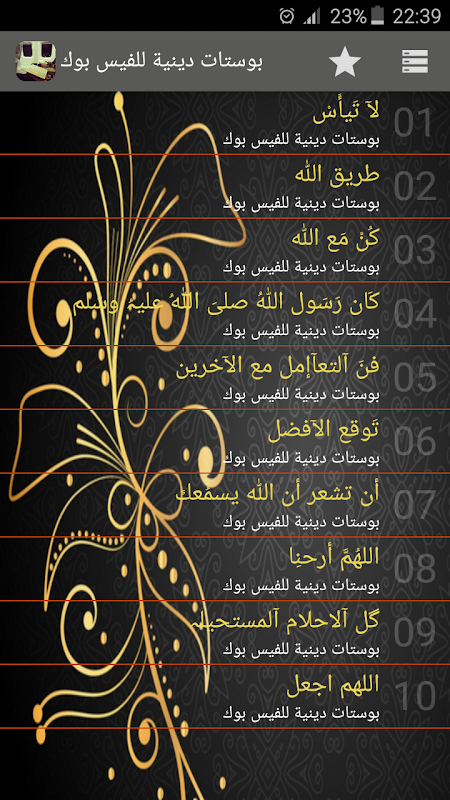 23% 22:39
بوستات دينية للفيس بوك
01 لآ تَيأَسْ
بوستات دينية للفيس بوك
02 طريق الله
بوستات دينية للفيس بوك
03 كُنْ مَع الله
بوستات دينية للفيس بوك
04 كَان رَسَول اللهُ صلىَ اللهُ عليهُ وسلم
بوستات دينية للفيس بوك
05 فنَ آلتعآإمل مع الآخرين
بوستات دينية للفيس بوك
06 تَوقع الآفضل
بوستات دينية للفيس بوك
07 أن تشعر أن الله يسمَعك
بوستات دينية للفيس بوك
08 اللهُمَّ أرحنِا
بوستات دينية للفيس بوك
09 گل آلاحلام آلمستحيلہ
بوستات دينية للفيس بوك
10 اللهم اجعل
بوستات دينية للفيس بوك